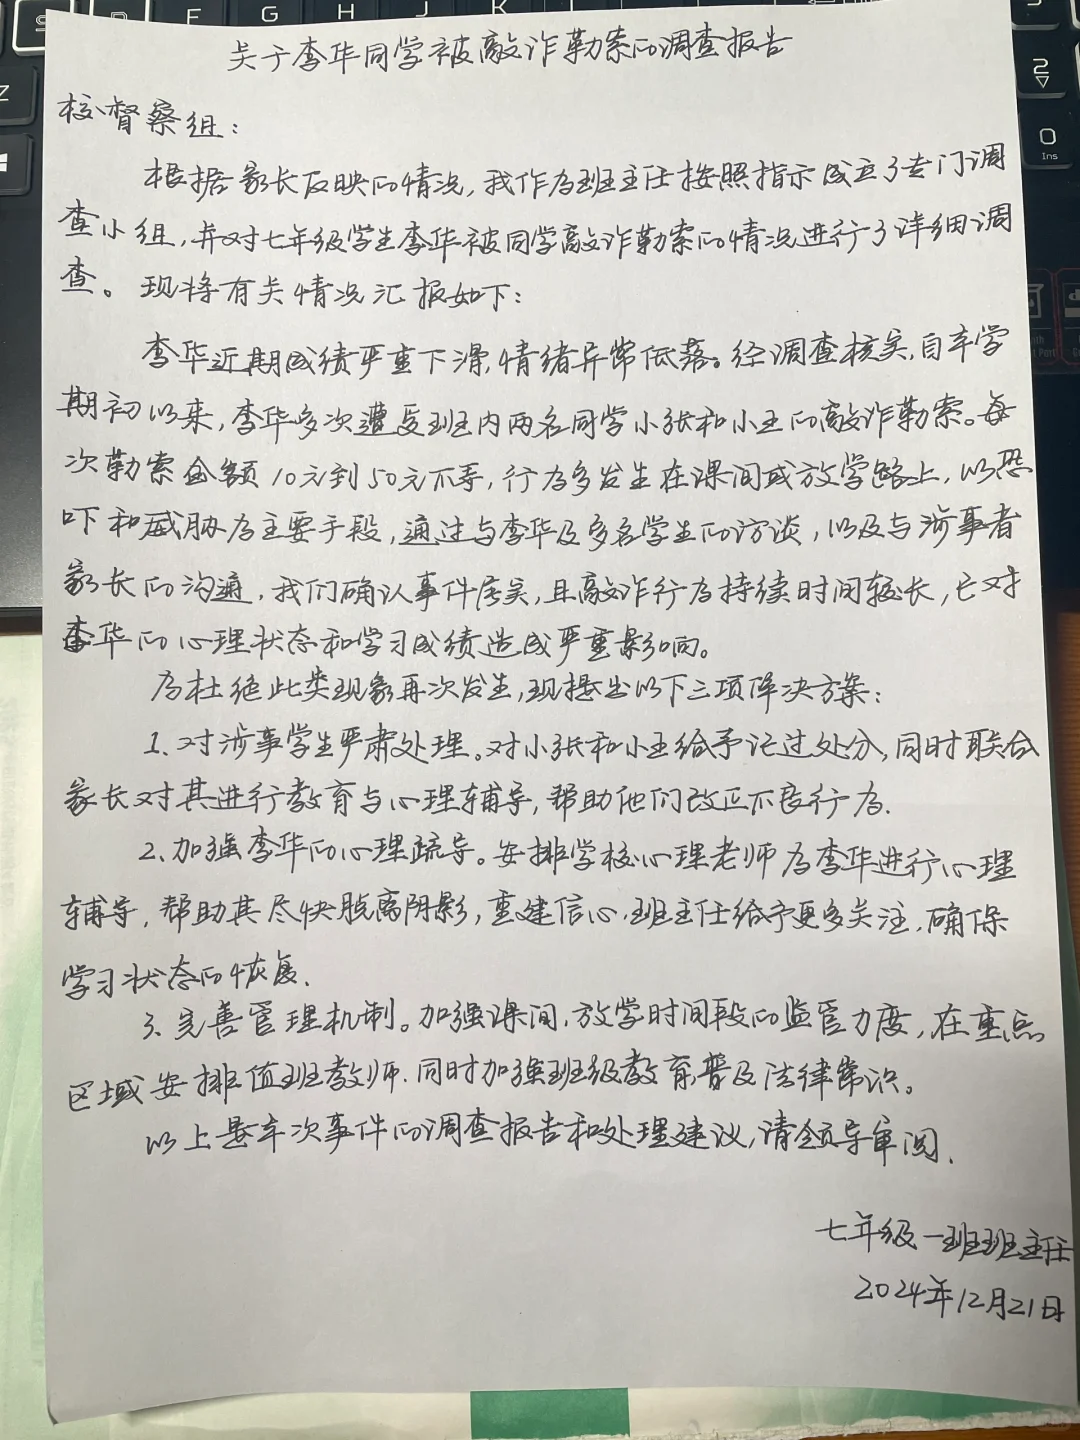 S D F G H J K L
Z
2
0
Ins
关于李华同学被敲诈勒索的调查报告
校督察组：
根据家长反映的情况，我作为班主任按照指示成立了专门调
查小组，并对七年级学生李华被同学敲诈勒索的情况进行了详细调
查。现将有关情况汇报如下：
李华近期成绩严重下滑，情绪异常低落。经调查核实，自本学
期初以来，李华多次遭受班内两名同学小张和小王的敲诈勒索。每
次勒索金额10元到50元不等，行为多发生在课间或放学路上，以恐
吓和威胁为主要手段，通过与李华及多名学生的访谈，以及与涉事者
家长的沟通，我们确认事件属实，且敲诈行为持续时间较长，已对
李华的心理状态和学习成绩造成严重影响。
为杜绝此类现象再次发生，现提出以下三项解决方案：
1、对涉事学生严肃处理。对小张和小王给予记过处分，同时联合
家长对其进行教育与心理辅导，帮助他们改正不良行为.
2、加强李华的心理疏导。安排学校心理老师为李华进行心理
辅导，帮助其尽快脱离阴影，重建信心.班主任给予更多关注，确保
学习状态的恢复.
3、完善管理机制。加强课间，放学时间段的监管力度，在重点
区域安排值班教师.同时加强班级教育，普及法律常识。
以上是本次事件的调查报告和处理建议，请领导审阅.
七年级一班班主任
2024年12月21日